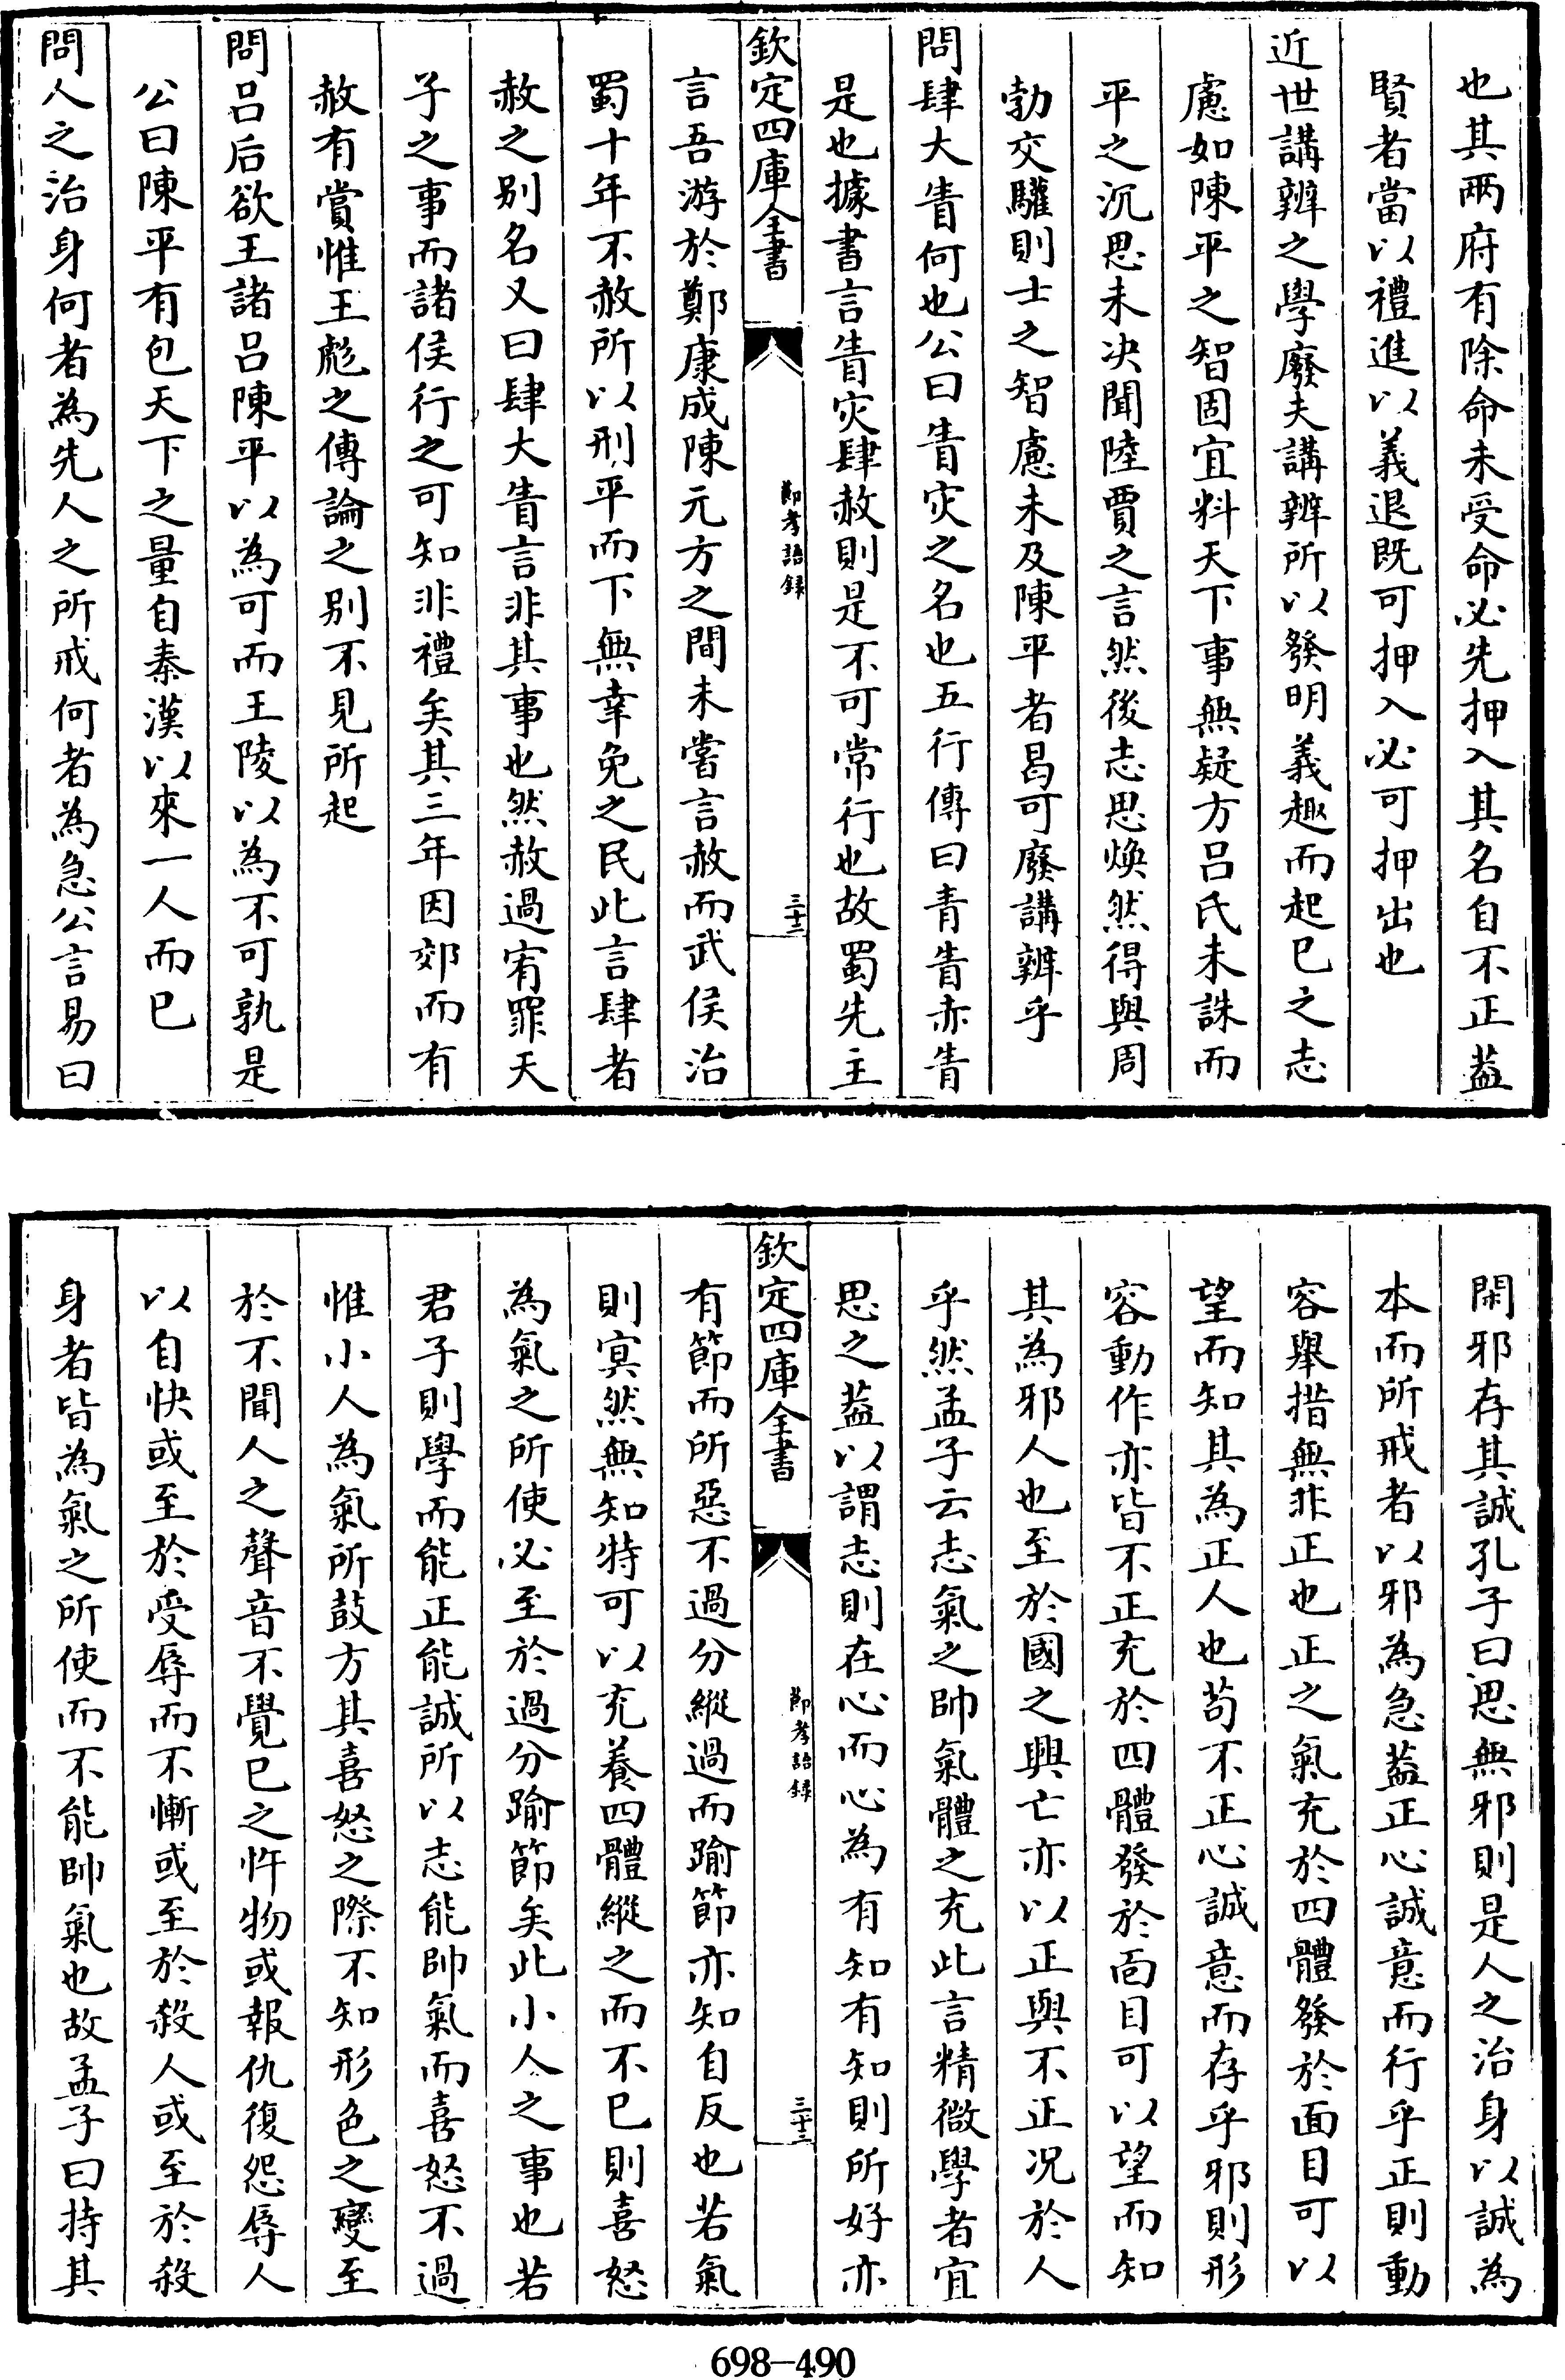 也其兩府有除命未受命必先押入其名自不正葢
賢者當以禮進以義退既可押入必可押出也
近世講辨之學廢夫講辨所以發明義趣而起已之志
慮如陳平之智固宜料天下事無疑方呂氏未誅而
平之沉思未决聞陸賈之言然後志思煥然得與周
勃交驩則士之智慮未及陳平者曷可廢講辨乎
問肆大眚何也公曰眚灾之名也五行傳曰青眚亦眚
是也據書言眚灾肆赦則是不可常行也故蜀先主
欽定四庫全書
節孝語録
三十二
言吾游於鄭康成陳元方之間未嘗言赦而武侯治
蜀十年不赦所以刑平而下無幸免之民此言肆者
赦之别名又曰肆大眚言非其事也然赦過宥罪天
子之事而諸侯行之可知非禮矣其三年因郊而有
赦有賞惟王彪之傳論之别不見所起
問呂后欲王諸呂陳平以為可而王陵以為不可孰是
公曰陳平有包天下之量自秦漢以來一人而已
問人之治身何者為先人之所戒何者為急公言易曰
閑邪存其誠孔子曰思無邪則是人之治身以誠為
本而所戒者以邪為急葢正心誠意而行乎正則動
容舉措無非正也正之氣充於四體發於面目可以
望而知其為正人也苟不正心誠意而存乎邪則形
容動作亦皆不正充於四體發於面目可以望而知
其為邪人也至於國之興亡亦以正與不正况於人
乎然孟子云志氣之帥氣體之充此言精微學者宜
思之葢以謂志則在心而心為有知有知則所好亦
欽定四庫全書
節孝語録
三十二
有節而所惡不過分縱過而踰節亦知自反也若氣
則冥然無知特可以充養四體縱之而不已則喜怒
為氣之所使必至於過分踰節矣此小人之事也若
君子則學而能正能誠所以志能帥氣而喜怒不過
惟小人為氣所鼓方其喜怒之際不知形色之變至
於不聞人之聲音不覺已之忤物或報仇復怨辱人
以自快或至於受辱而不慚或至於殺人或至於殺
身者皆為氣之所使而不能帥氣也故孟子曰持其
698-490